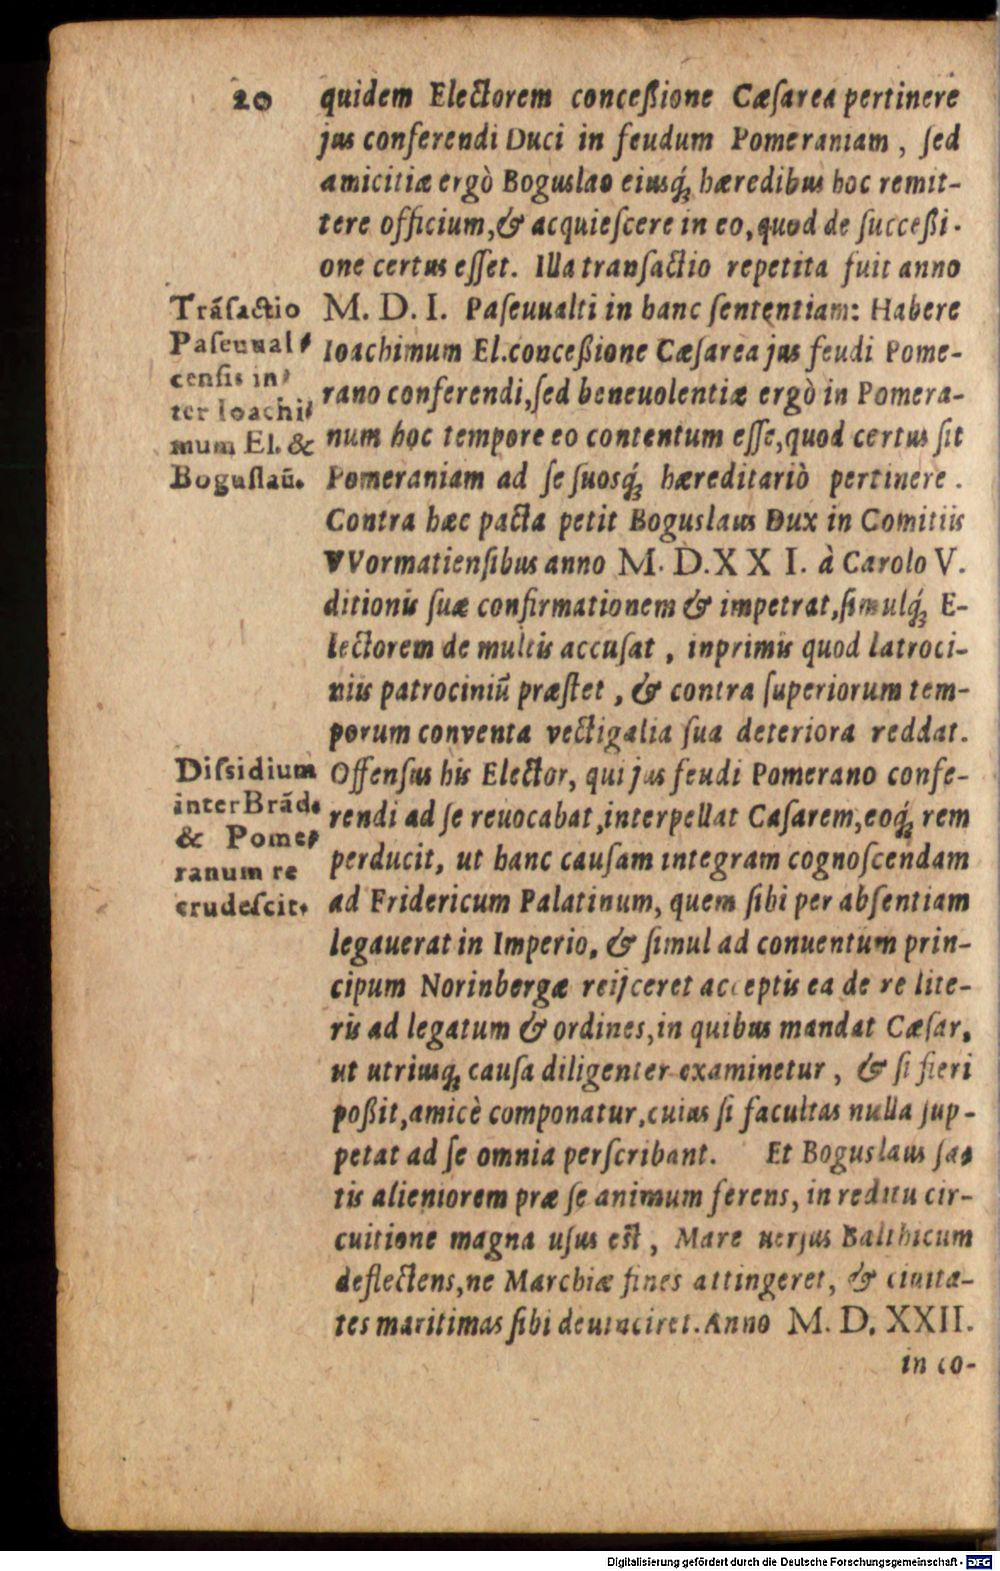 20
quidem Electorem conceßione Cæſarea pertinere
jus conferendi Duci in feudum Pomeraniam, ſed
amicitiæ ergò Boguslao eiusq́; hæredibus hoc remit-
tere officium, & acquieſcere in eo, quod de ſucceßi-
one certus eſſet. Illa tranſactio repetita fuit anno
M. D. I. Paſeuualti in hanc ſententiam: Habere
Ioachimum El. conceßione Cæſarea jus feudi Pome-
rano conferendi, ſed beneuolentiæ ergò in Pomera-
num hoc tempore eo contentum eſſe, quod certus ſit
Pomeraniam ad ſe ſuosq́; hæreditariò pertinere.
Contra hæc pacta petit Boguslaus Dux in Comitiis
VVormatienſibus anno M. D. XXI. à Carolo V.
ditionis ſuæ confirmationem & impetrat, ſimulq́; E-
lectorem de multis accuſat, inprimis quod latroci-
niis patrociniū præſtet, & contra ſuperiorum tem-
porum conventa vectigalia ſua deteriora reddat.
Offenſus his Elector, qui jus feudi Pomerano confe-
rendi ad ſe reuocabat, interpellat Cæſarem, eoq́; rem
perducit, ut hanc cauſam integram cognoſcendam
ad Fridericum Palatinum, quem ſibi per abſentiam
legauerat in Imperio, & ſimul ad conuentum prin-
cipum Norinbergæ reijceret acceptis ea de re lite-
ris ad legatum & ordines, in quibus mandat Cæſar,
ut utriusq; cauſa diligenter examinetur, & ſi fieri
poßit, amicè componatur, cuius ſi facultas nulla ſup-
petat ad ſe omnia perſcribant. Et Boguslaus ſa-
tis alieniorem præ ſe animum ferens, in reditu cir-
cuitione magna uſus eſt, Mare uerſus Balthicum
deflectens, ne Marchiæ fines attingeret, & ciuita-
tes maritimas ſibi deuinciret. Anno M. D. XXII.
in co-
Trāſactio
Paſeuual-
cenſis in-
ter Ioachi-
mum El. &
Boguſlaū.
Diſsidium
inter Brād.
& Pome-
ranum re
crudeſcit.
Digitalisierung gefördert durch die Deutsche Forschungsgemeinschaft - DFG